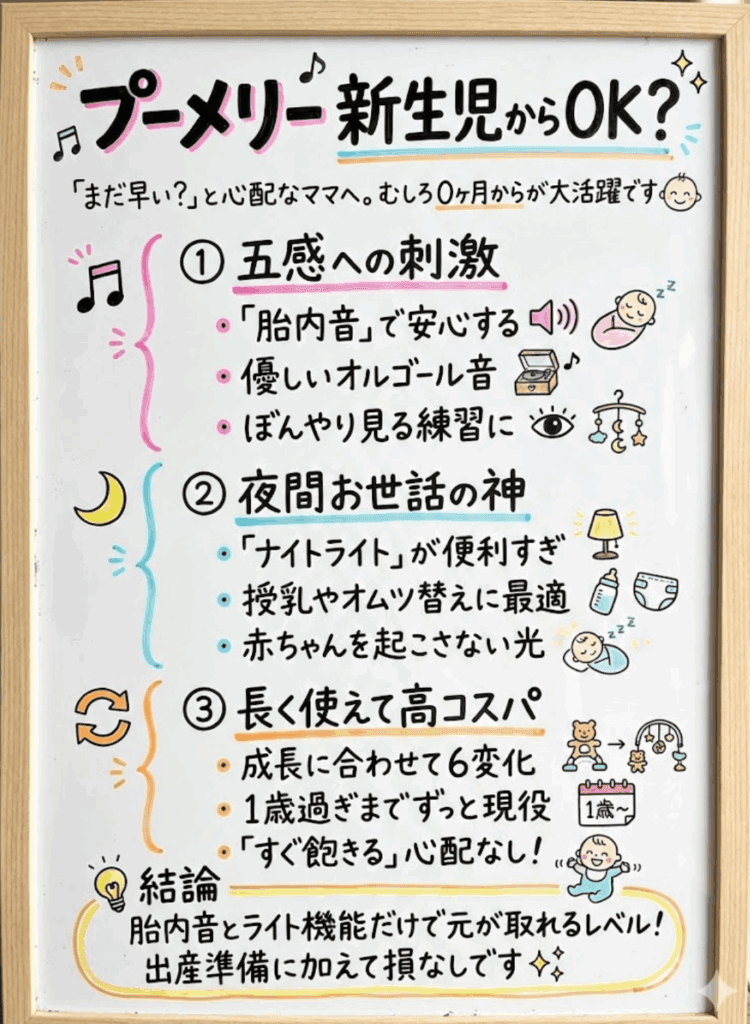 プーメリー 新生児からOK?
「まだ早い?」と心配なママへ。むしろ0ヶ月からが大活躍です
① 五感への刺激
・「胎内音」で安心する
・優しいオルゴール音
・ぼんやり見る練習に
② 夜間お世話の神
・「ナイトライト」が便利すぎ
・授乳やオムツ替えに最適
・赤ちゃんを起こさない光
③ 長く使えて高コスパ
・成長に合わせて6変化
・1歳過ぎまでずっと現役
1歳~
・「すぐ飽きる」心配なし!
結論
胎内音とライト機能だけで元が取れるレベル!
出産準備に加えて損なしです